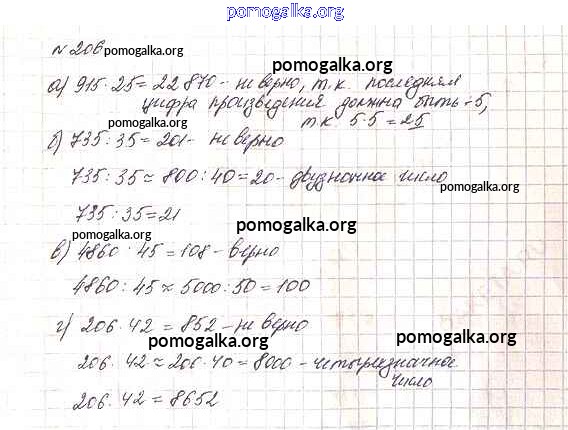 pomogalka.org
№ 206 pomogalka.org
pomogalka.org
а) 915 · 25 = 22 870 - не верно, т.к. последняя
цифра произведения должна быть - 5,
pomogalka.org т.к. 5·5 = 25
б) 735 : 35 = 201 - не верно
735 : 35 ≈ 800 : 40 = 20 - двузначное число
pomogalka.org
735 : 35 = 21
pomogalka.org pomogalka.org
в) 4860 : 45 = 108 - верно
4860 : 45 ≈ 5000 : 50 = 100
г) 206 · 42 = 852 - не верно
pomogalka.org pomogalka.org
206 · 42 ≈ 200 · 40 = 8000 - четырехзначное
число
206 · 42 = 8652
pomogalka.org